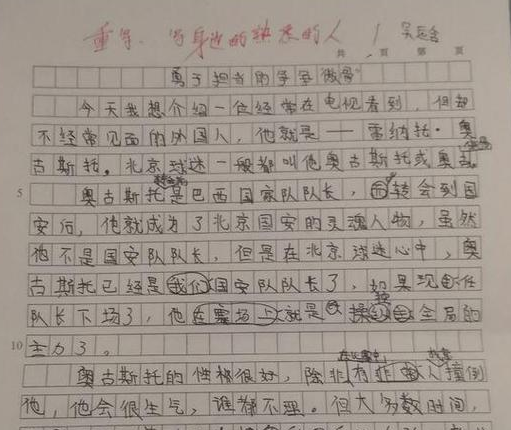 重写、写身边的熟悉的人
共 页 第 页
勇于担当的
今天我想介绍一位经常在电视看到，但却
不经常见面的外国人，他就是——雷纳托·奥
古斯托。北京球迷一般都叫他奥古斯托或奥古
5 奥古斯托是巴西国家队队长，自转会到国
安后，他就成为了北京国安的灵魂人物，虽然
他不是国安队队长，但是在北京球迷心中，奥
古斯托已经是我们国安队队长了，如果现任
队长下场了，他在赛场上就是操控全局的
10 主力了。
奥古斯托的性格很好，除非有非人撞倒
他，他会很生气，谁都不理。但大多数时间，